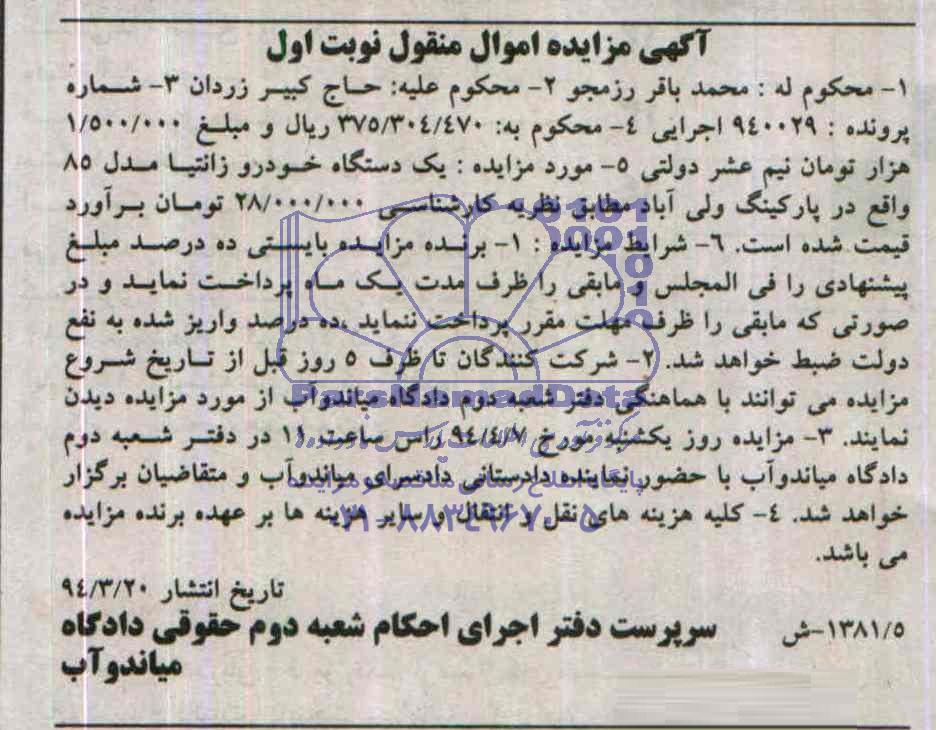 آگهی مزایده اموال منقول نوبت اول
۱- محکوم له : محمد باقر رزمجو ۲- محکوم علیه: حاج کبیر زردان ۳- شماره
پرونده : ۹٤۰۰۲۹ اجرایی ٤- محکوم به: ۳۷۵/۳۰٤/٤۷۰ ریال و مبلغ ۱/۵۰۰/۰۰۰
هزار تومان نیم عشر دولتی ۵- مورد مزایده : یک دستگاه خودرو زانتیا مدل ۸۵
واقع در پارکینگ ولی آباد مطابق نظریه کارشناسی ۲۸/۰۰۰/۰۰۰ تومان برآورد
قیمت شده است. ٦- شرایط مزایده : ۱- برنده مزایده بایستی ده درصد مبلغ
پیشنهادی را فی المجلس و مابقی را ظرف مدت یک ماه پرداخت نماید و در
صورتی که مابقی را ظرف مهلت مقرر پرداخت ننماید ،ده درصد واریز شده به نفع
دولت ضبط خواهد شد. ۲- شرکت کنندگان تا ظرف ۵ روز قبل از تاریخ شروع
مزایده می توانند با هماهنگی دفتر شعبه دوم دادگاه میاندوآب از مورد مزایده دیدن
نمایند. ۳- مزایده روز یکشنبه مورخ ۹٤/٤/۷ راس ساعت ۱۱ در دفتر شعبه دوم
دادگاه میاندوآب با حضور نماینده دادستانی دادسرای میاندوآب و متقاضیان برگزار
خواهد شد. ٤- کلیه هزینه های نقل و انتقال و سایر هزینه ها بر عهده برنده مزایده
می باشد.
تاریخ انتشار ۹٤/۳/۲۰
۱۳۸۱/۵-ش سرپرست دفتر اجرای احکام شعبه دوم حقوقی دادگاه
میاندوآب
ParsNamadData
۰۲۱-۸۸۳٤۹٦۷۰-۵